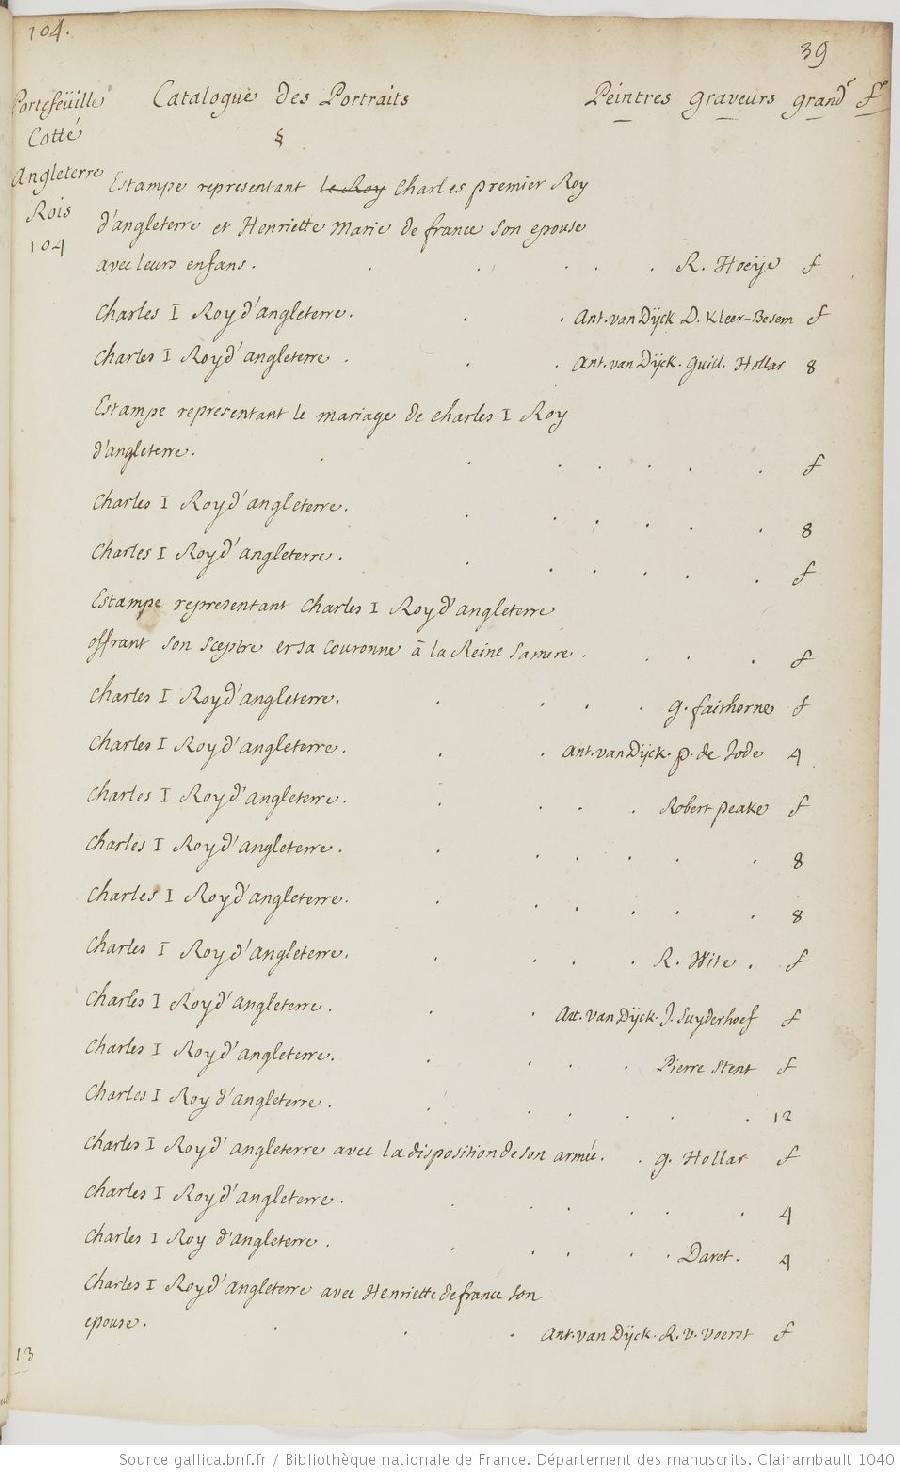 104.
39
Portefeüille Catalogue des Portraits Peintres graveurs grandr fr
Cotté §
Angleterre
Rois
104
Estampe representant le Roy Charles premier Roy
d'angleterre et Henriette Marie de france son epouse
avec leurs enfans. R. Hoeije f
Charles I Roy d'angleterre. Ant. van Dÿck D. Kleer-Besem f
Charles I Roy d'angleterre. Ant. van Dÿck. Guill. Hollar 8
Estampe representant le mariage de Charles I Roy
d'angleterre. f
Charles I Roy d'angleterre. 8
Charles I Roy d'angleterre. f
Estampe representant Charles I Roy d'angleterre
offrant son sceptre et sa couronne à la Reine sa mere. f
Charles I Roy d'angleterre. g. fairhorne f
Charles I Roy d'angleterre. Ant. van Dÿck. p. de Jode 4
Charles I Roy d'angleterre. Robert peake f
Charles I Roy d'angleterre. 8
Charles I Roy d'angleterre. 8
Charles I Roy d'angleterre. R. Wite. f
Charles I Roy d'angleterre. Ant. van Dÿck. J. Suyderhoef f
Charles I Roy d'angleterre. Pierre Stent f
Charles I Roy d'angleterre. 12
Charles I Roy d'angleterre avec la disposition de son armée. g. Hollar f
Charles I Roy d'angleterre. 4
Charles I Roy d'angleterre. Daret. 4
Charles I Roy d'angleterre avec Henriette de france son
epouse. Ant. van Dÿck. R. v. voerst f
13
Source gallica.bnf.fr / Bibliothèque nationale de France. Département des manuscrits. Clairambault 1040